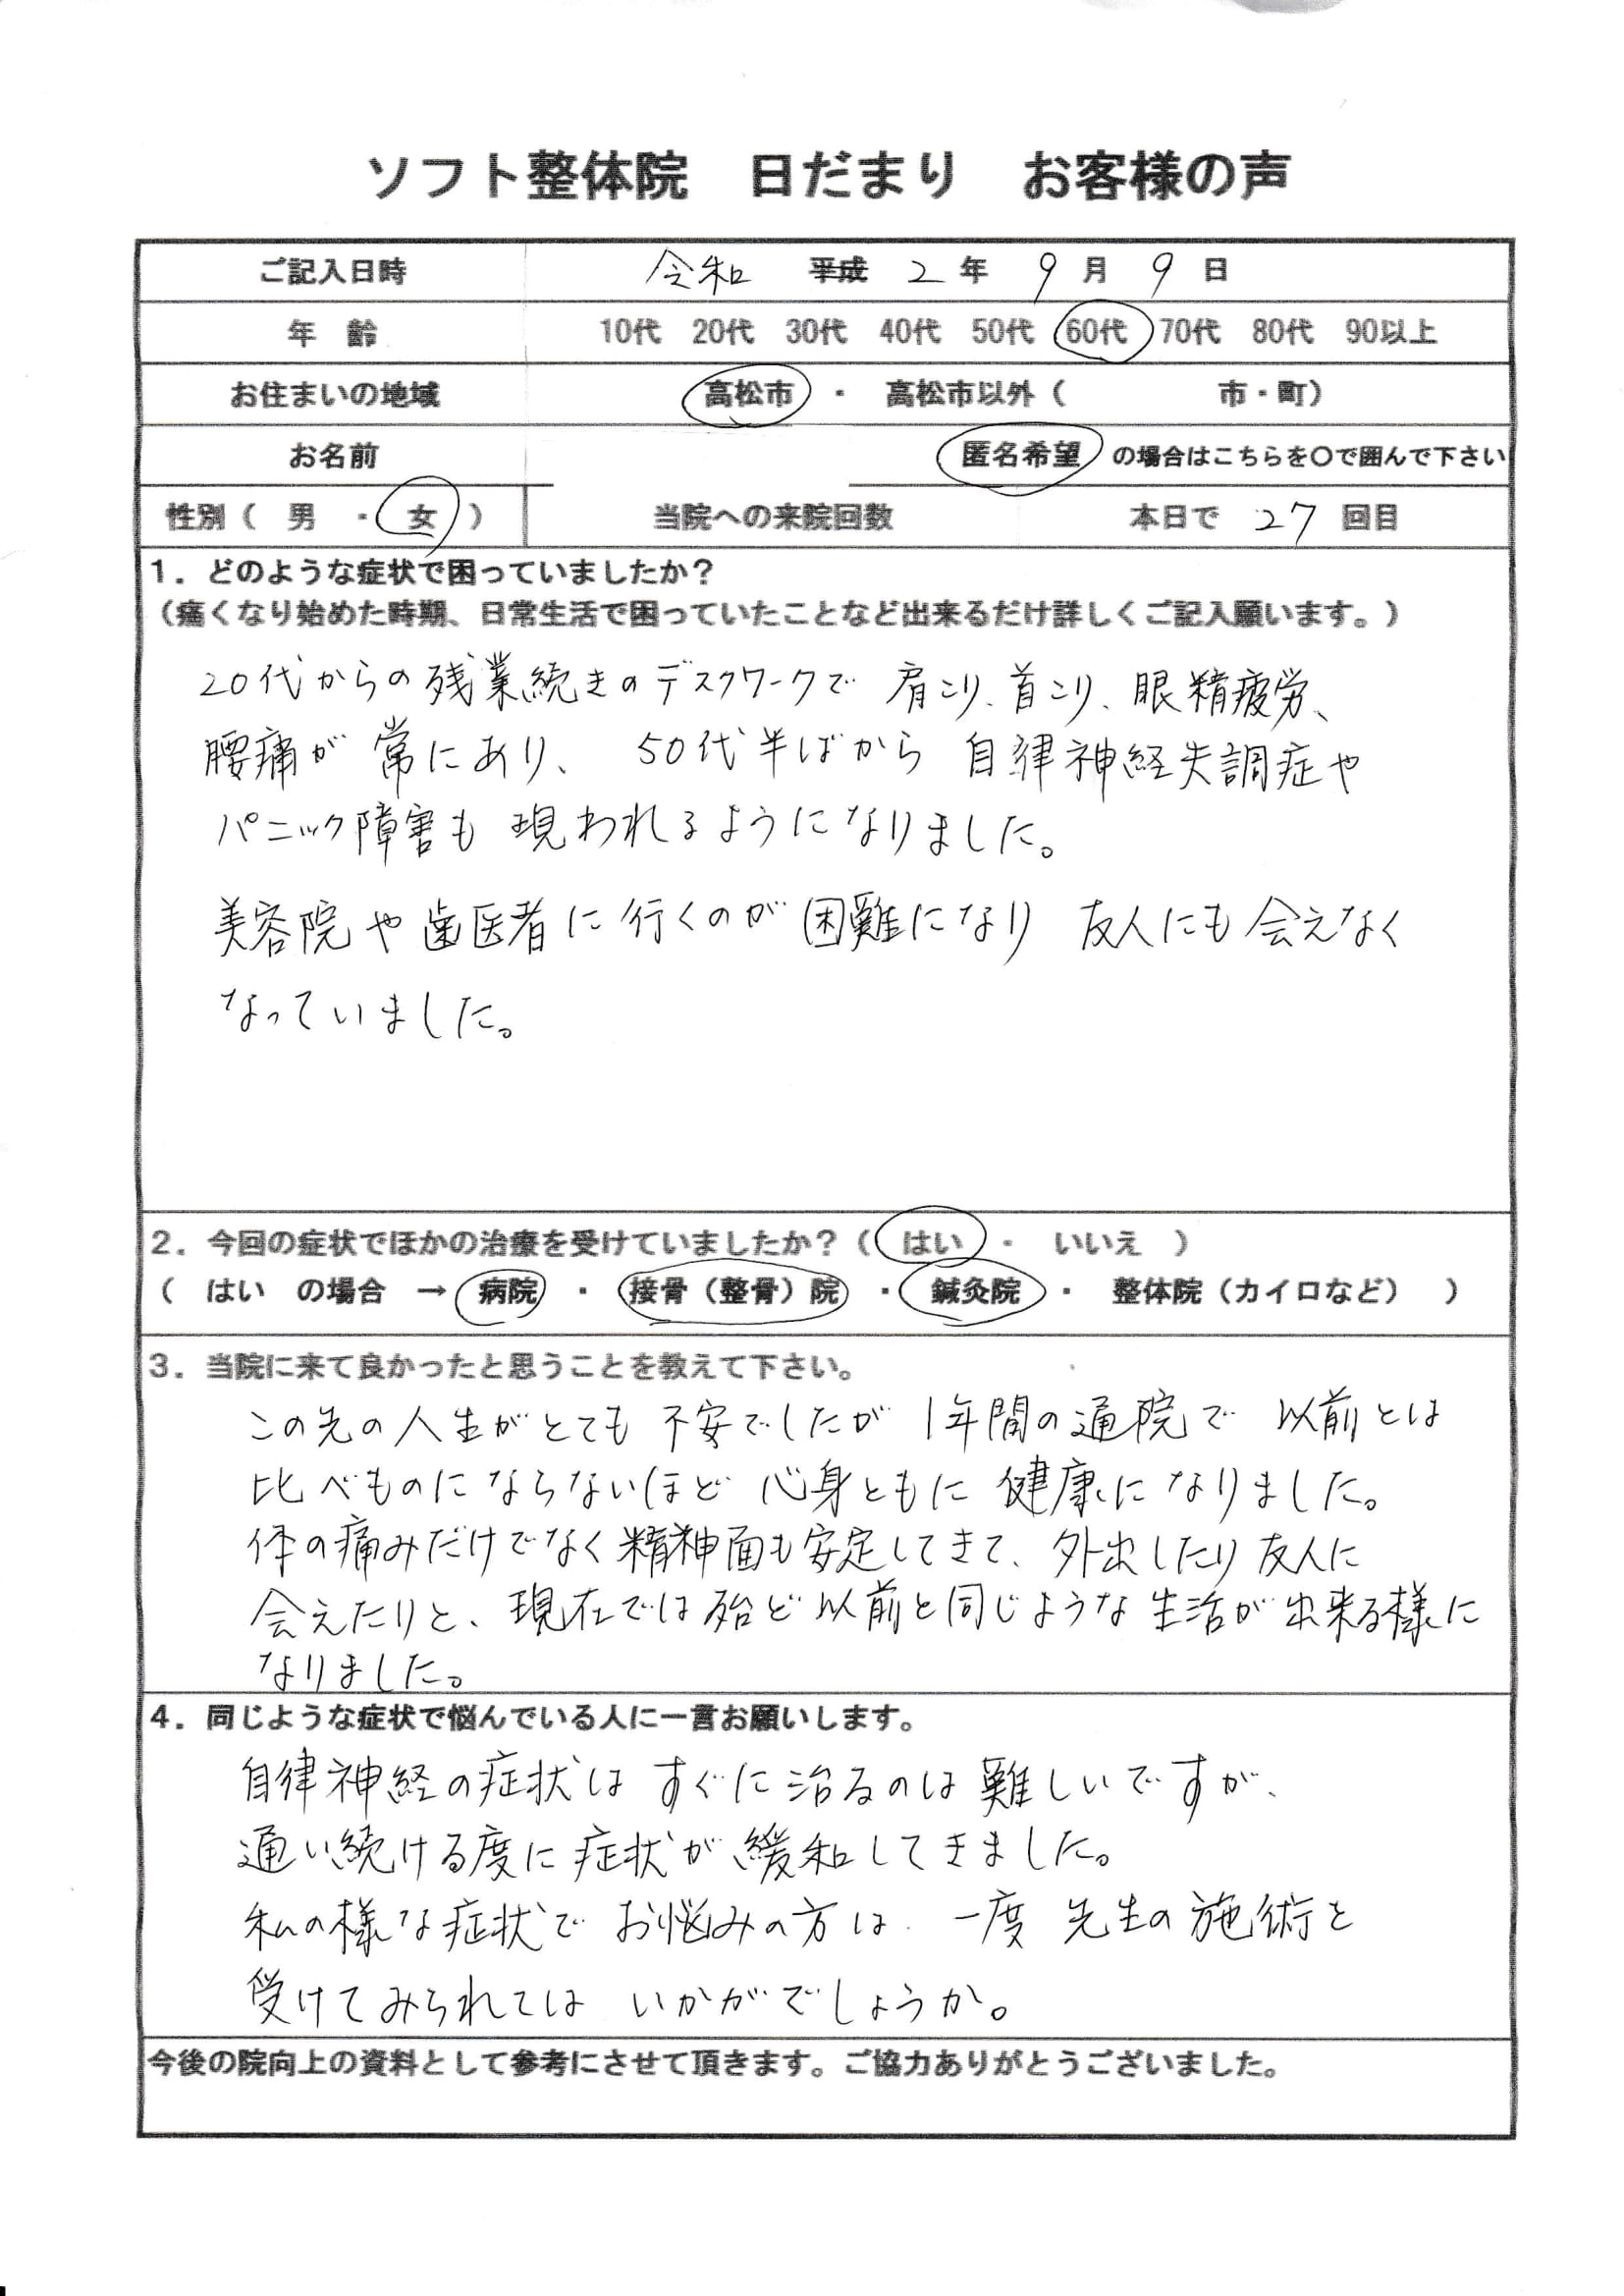 ソフト整体院　日だまり　お客様の声
ご記入日時　令和　平成　2　年　9　月　9　日
年　齢　10代　20代　30代　40代　50代　60代　70代　80代　90以上
お住まいの地域　高松市　・　高松市以外（　　　市・町）
お名前　匿名希望　の場合はこちらを〇で囲んで下さい
性別（　男　・　女　）　当院への来院回数　本日で　27　回目
1．どのような症状で困っていましたか？
（痛くなり始めた時期、日常生活で困っていたことなど出来るだけ詳しくご記入願います。）
20代からの残業続きのデスクワークで　肩こり、首こり、眼精疲労、
腰痛が常にあり、　50代半ばから　自律神経失調症や
パニック障害も　現われるようになりました。
美容院や歯医者に行くのが困難になり　友人にも会えなく
なっていました。
2．今回の症状でほかの治療を受けていましたか？（　はい　・　いいえ　）
（　はい　の場合　→　病院　・　接骨（整骨）院　・　鍼灸院　・　整体院（カイロなど）　）
3．当院に来て良かったと思うことを教えて下さい。
この先の人生がとても　不安でしたが　1年間の通院で　以前とは
比べものにならないほど　心身ともに　健康になりました。
体の痛みだけでなく精神面も安定してきて、外出したり友人に
会えたりと、現在では殆ど以前と同じような生活が出来る様に
なりました。
4．同じような症状で悩んでいる人に一言お願いします。
自律神経の症状は　すぐに治るのは難しいですが、
通い続ける度に症状が緩和してきました。
私の様な症状で　お悩みの方は、一度　先生の施術を
受けてみられては　いかがでしょうか。
今後の院向上の資料として参考にさせて頂きます。ご協力ありがとうございました。